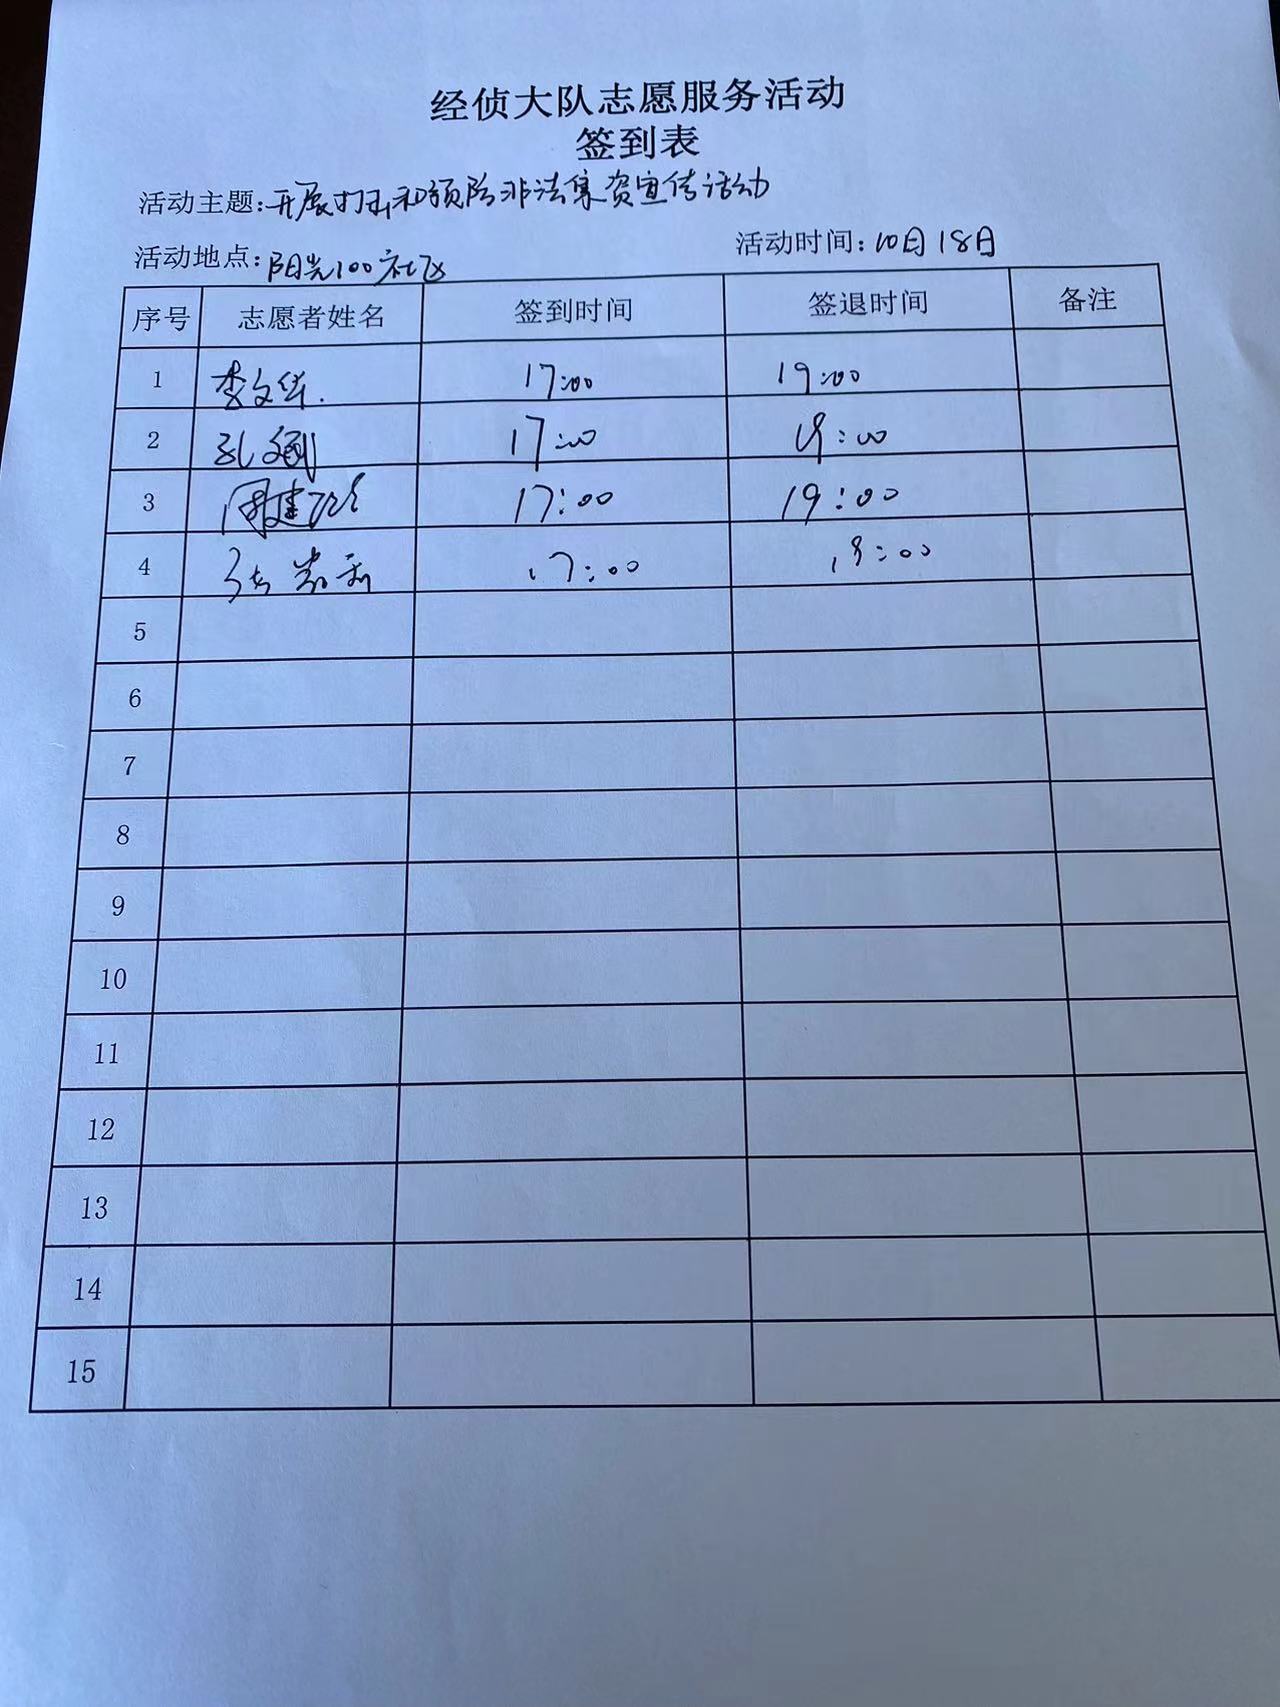 经侦大队志愿服务活动
签到表
活动主题:开展打击和预防非法集资宣传活动
活动地点:阳光100社区 活动时间:10月18日
序号 志愿者姓名 签到时间 签退时间 备注
1 李文华. 17:00 19:00
2 孔文刚 17:00 19:00
3 周建 17:00 19:00
4 张 17:00 19:00
5
6
7
8
9
10
11
12
13
14
15